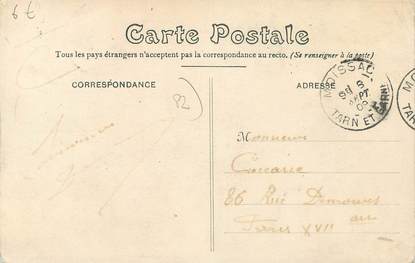 6 €
Carte Postale
Tous les pays étrangers n'acceptent pas la correspondance au recto. (Se renseigner à la poste)
CORRESPONDANCE
ADRESSE
MOISSAC
8
SEPT.
TARN ET GARNE
82
Monsieur
86 Rue
Paris XVII